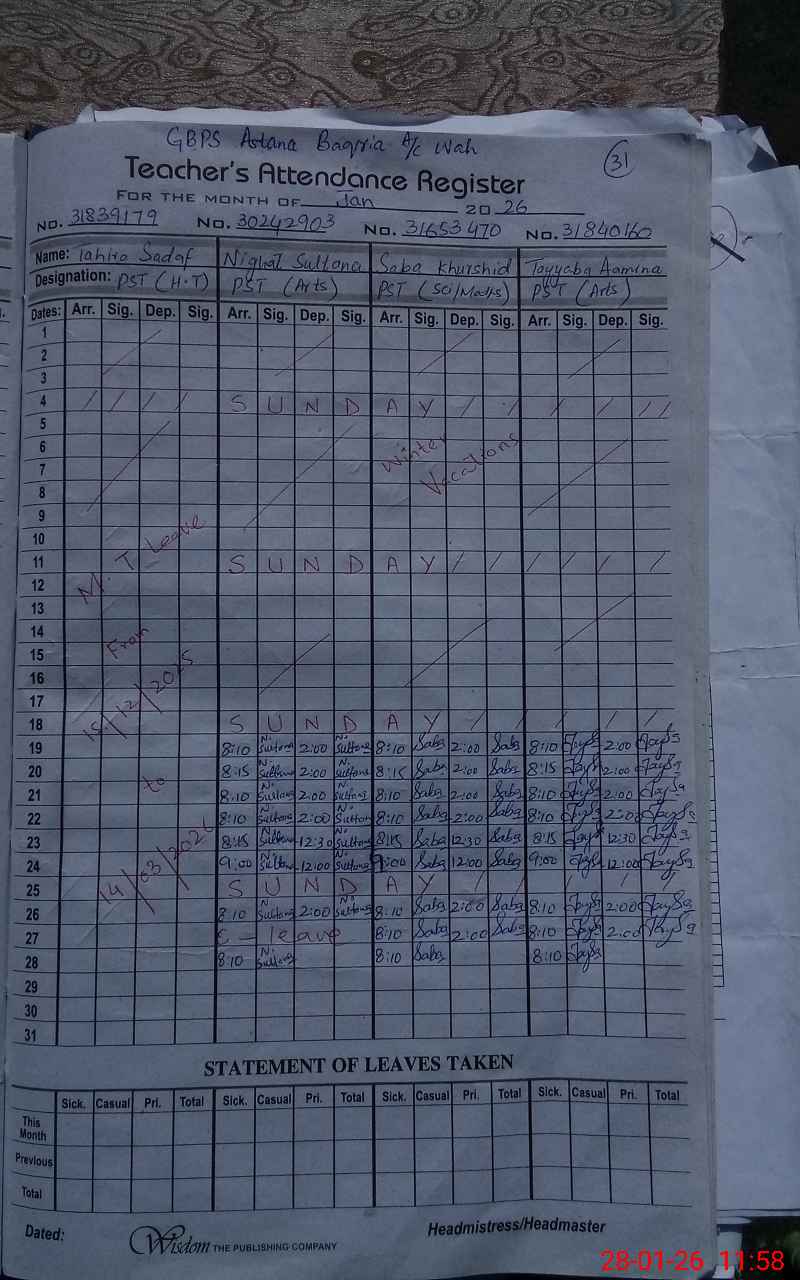 GBPS Astana Baqria A/c Wah
31
Teacher's Attendance Register
FOR THE MONTH OF Jan 2026
No. 31839179 No. 30242903 No. 31653470 No. 31840160
Name: Tahira Sadaf Nighat Sultana Saba Khurshid Tayyaba Aamina
Designation: PST (H.T) PST (Arts) PST (Sci/Maths) PST (Arts)
Dates: Arr. Sig. Dep. Sig. Arr. Sig. Dep. Sig. Arr. Sig. Dep. Sig. Arr. Sig. Dep. Sig.
1
2
3
4 / / / / S U N D A Y / / / / / /
5
6 Winter
7 Vacations
8
9
10 M.T Leave
11 S U N D A Y / / / / / /
12
13
14
15 From
16
17 15/12/2025
18 S U N D A Y / / / / / /
19 8:10 N. Sultana 2:00 N. Sultana 8:10 Saba 2:00 Saba 8:10 2:00
20 to 8:15 N. Sultana 2:00 N. Sultana 8:15 Saba 2:00 Saba 8:15 2:00
21 8:10 N. Sultana 2:00 N. Sultana 8:10 Saba 2:00 Saba 8:10 2:00
22 8:10 N. Sultana 2:00 N. Sultana 8:10 Saba 2:00 Saba 8:10 2:00
23 8:15 N. Sultana 12:30 N. Sultana 8:15 Saba 12:30 Saba 8:15 12:30
24 14/03/2026 9:00 N. Sultana 12:00 N. Sultana 9:00 Saba 12:00 Saba 9:00 12:00
25 S U N D A Y / / / / / /
26 8:10 N. Sultana 2:00 N. Sultana 8:10 Saba 2:00 Saba 8:10 2:00
27 C - leave 8:10 Saba 2:00 Saba 8:10 2:00
28 8:10 N. Sultana 8:10 Saba 8:10
29
30
31
STATEMENT OF LEAVES TAKEN
Sick. Casual Pri. Total Sick. Casual Pri. Total Sick. Casual Pri. Total Sick. Casual Pri. Total
This Month
Previous
Total
Dated: Wisdom THE PUBLISHING COMPANY Headmistress/Headmaster
28-01-26 11:58